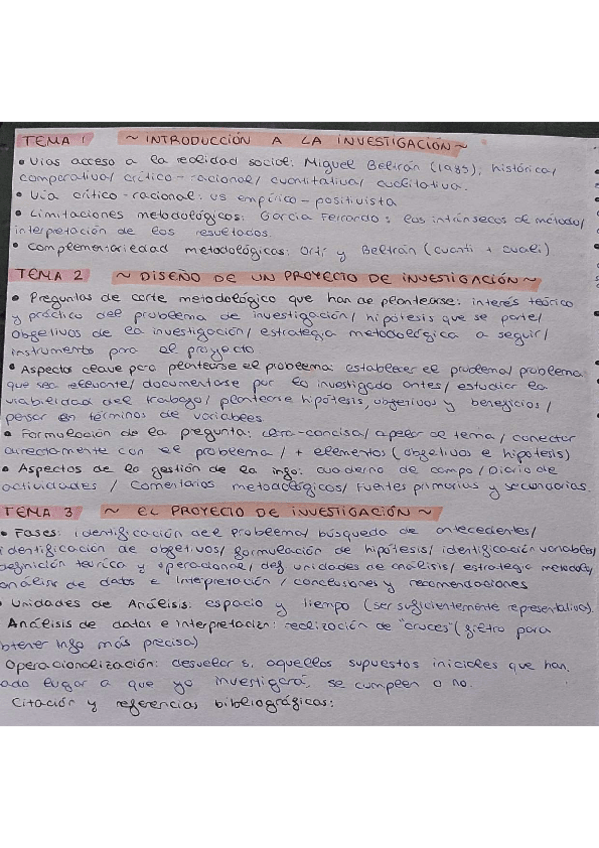 TEMA 1 ~ INTRODUCCIÓN A LA INVESTIGACIÓN ~
• Vías acceso a la realidad social: Miguel Beltrán (1985); histórica/
comparativa/ crítico-racional/ cuantitativa/ cualitativa.
• Vía crítico-racional: vs empírico-positivista
• Limitaciones metodológicos: García Ferrando: las intrínsecos de método/
interpretación de los resultados.
• Complementariedad metodológicos: Ortí y Beltrán (cuanti + cuali)
TEMA 2 ~ DISEÑO DE UN PROYECTO DE INVESTIGACIÓN ~
• Preguntas de corte metodológico que han de plantearse: interés teórico
y práctico del problema de investigación/ hipótesis que se parte/
objetivos de la investigación/ estrategia metodológica a seguir/
instrumento para el proyecto
• Aspectos clave para plantearse el problema: establecer el problema/ problema
que sea relevante/ documentarse por lo investigado antes/ estudiar la
viabilidad del trabajo/ plantearse hipótesis, objetivos y beneficios/
pensar en términos de variables
• Formulación de la pregunta: clara-concisa/ apelar al tema/ conectar
directamente con el problema/ + elementos (objetivos e hipótesis)
• Aspectos de la gestión de la info: cuaderno de campo/ Diario de
actividades / comentarios metodológicos/ Fuentes primarias y secundarias.
TEMA 3 ~ EL PROYECTO DE INVESTIGACIÓN ~
• Fases: identificación del problema/ búsqueda de antecedentes/
identificación de objetivos/ formulación de hipótesis/ identificación variables/
definición teórica y operacional/ def unidades de análisis/ estrategia metodolo/
análisis de datos e interpretación / conclusiones y recomendaciones
• Unidades de Análisis: espacio y tiempo (ser suficientemente representativa).
Análisis de datos e interpretación: realización de "cruces" (filtro para
btener info más precisa)
Operacionalización: desvelar s. aquellos supuestos iniciales que han
ado lugar a que yo investigara, se cumplen o no.
Citación y referencias bibliográficas: